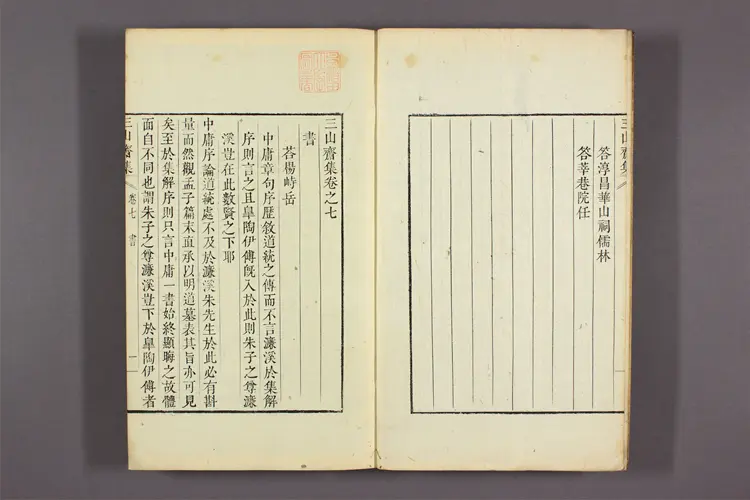 三山齋集
答淳昌華山祠儒林
答莘巷院任
三山齋集卷之七
書
荅楊峙岳
中庸章句序歷敘道統之傳而不言濂溪於集解
序則言之且臯陶伊傅旣入於此則朱子之尊濂
溪豈在此數賢之下耶
中庸序論道統處不及於濂溪朱先生於此必有斟
量而然觀孟子篇末直承以明道墓表其旨亦可見
矣至於集解序則只言中庸一書始終顯晦之故體
面自不同也謂朱子之尊濂溪豈下於臯陶伊傅者
三山齋集 卷七 書 一